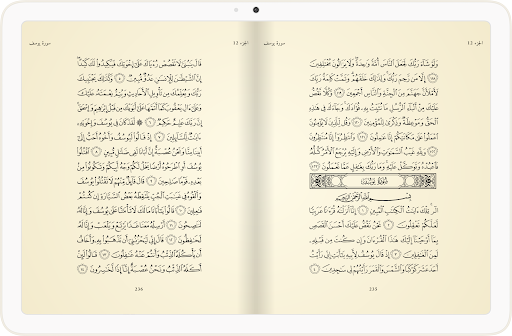 الجزء 12 سورة يوسف
وَلَوْ شَآءَ رَبُّكَ لَجَعَلَ ٱلنَّاسَ أُمَّةً وَٰحِدَةً وَلَا يَزَالُونَ مُخْتَلِفِينَ
١١٨ إِلَّا مَن رَّحِمَ رَبُّكَ وَلِذَٰلِكَ خَلَقَهُمْ وَتَمَّتْ كَلِمَةُ رَبِّكَ
لَأَمْلَأَنَّ جَهَنَّمَ مِنَ ٱلْجِنَّةِ وَٱلنَّاسِ أَجْمَعِينَ ١١٩ وَكُلًّا نَّقُصُّ
عَلَيْكَ مِنْ أَنۢبَآءِ ٱلرُّسُلِ مَا نُثَبِّتُ بِهِۦ فُؤَادَكَ وَجَآءَكَ فِى هَٰذِهِ
ٱلْحَقُّ وَمَوْعِظَةٌ وَذِكْرَىٰ لِلْمُؤْمِنِينَ ١٢٠ وَقُل لِّلَّذِينَ لَا يُؤْمِنُونَ
ٱعْمَلُوا۟ عَلَىٰ مَكَانَتِكُمْ إِنَّا عَٰمِلُونَ ١٢١ وَٱنتَظِرُوٓا۟ إِنَّا مُنتَظِرُونَ
١٢٢ وَلِلَّهِ غَيْبُ ٱلسَّمَٰوَٰتِ وَٱلْأَرْضِ وَإِلَيْهِ يُرْجَعُ ٱلْأَمْرُ كُلُّهُۥ
فَٱعْبُدْهُ وَتَوَكَّلْ عَلَيْهِ وَمَا رَبُّكَ بِغَٰفِلٍ عَمَّا تَعْمَلُونَ ١٢٣
سُورَةُ يُوسُفَ
بِسْمِ ٱللَّهِ ٱلرَّحْمَٰنِ ٱلرَّحِيمِ
الٓر تِلْكَ ءَايَٰتُ ٱلْكِتَٰبِ ٱلْمُبِينِ ١ إِنَّآ أَنزَلْنَٰهُ قُرْءَٰنًا عَرَبِيًّا
لَّعَلَّكُمْ تَعْقِلُونَ ٢ نَحْنُ نَقُصُّ عَلَيْكَ أَحْسَنَ ٱلْقَصَصِ
بِمَآ أَوْحَيْنَآ إِلَيْكَ هَٰذَا ٱلْقُرْءَانَ وَإِن كُنتَ مِن قَبْلِهِۦ
لَمِنَ ٱلْغَٰفِلِينَ ٣ إِذْ قَالَ يُوسُفُ لِأَبِيهِ يَٰٓأَبَتِ إِنِّى رَأَيْتُ
أَحَدَ عَشَرَ كَوْكَبًا وَٱلشَّمْسَ وَٱلْقَمَرَ رَأَيْتُهُمْ لِى سَٰجِدِينَ ٤
235
الجزء 12 سورة يوسف
قَالَ يَٰبُنَىَّ لَا تَقْصُصْ رُءْيَاكَ عَلَىٰٓ إِخْوَتِكَ فَيَكِيدُوا۟ لَكَ كَيْدًا
إِنَّ ٱلشَّيْطَٰنَ لِلْإِنسَٰنِ عَدُوٌّ مُّبِينٌ ٥ وَكَذَٰلِكَ يَجْتَبِيكَ
رَبُّكَ وَيُعَلِّمُكَ مِن تَأْوِيلِ ٱلْأَحَادِيثِ وَيُتِمُّ نِعْمَتَهُۥ عَلَيْكَ
وَعَلَىٰٓ ءَالِ يَعْقُوبَ كَمَآ أَتَمَّهَا عَلَىٰٓ أَبَوَيْكَ مِن قَبْلُ إِبْرَٰهِيمَ وَإِسْحَٰقَ
إِنَّ رَبَّكَ عَلِيمٌ حَكِيمٌ ٦ ۞ لَّقَدْ كَانَ فِى يُوسُفَ وَإِخْوَتِهِۦٓ
ءَايَٰتٌ لِّلسَّآئِلِينَ ٧ إِذْ قَالُوا۟ لَيُوسُفُ وَأَخُوهُ أَحَبُّ إِلَىٰٓ
أَبِينَا مِنَّا وَنَحْنُ عُصْبَةٌ إِنَّ أَبَانَا لَفِى ضَلَٰلٍ مُّبِينٍ ٨ ٱقْتُلُوا۟
يُوسُفَ أَوِ ٱطْرَحُوهُ أَرْضًا يَخْلُ لَكُمْ وَجْهُ أَبِيكُمْ وَتَكُونُوا۟ مِنۢ
بَعْدِهِۦ قَوْمًا صَٰلِحِينَ ٩ قَالَ قَآئِلٌ مِّنْهُمْ لَا تَقْتُلُوا۟ يُوسُفَ
وَأَلْقُوهُ فِى غَيَٰبَتِ ٱلْجُبِّ يَلْتَقِطْهُ بَعْضُ ٱلسَّيَّارَةِ إِن كُنتُمْ
فَٰعِلِينَ ١٠ قَالُوا۟ يَٰٓأَبَانَا مَا لَكَ لَا تَأْمَ۫نَّا عَلَىٰ يُوسُفَ وَإِنَّا لَهُۥ
لَنَٰصِحُونَ ١١ أَرْسِلْهُ مَعَنَا غَدًا يَرْتَعْ وَيَلْعَبْ وَإِنَّا لَهُۥ
لَحَٰفِظُونَ ١٢ قَالَ إِنِّى لَيَحْزُنُنِىٓ أَن تَذْهَبُوا۟ بِهِۦ وَأَخَافُ
أَن يَأْكُلَهُ ٱلذِّئْبُ وَأَنتُمْ عَنْهُ غَٰفِلُونَ ١٣ قَالُوا۟ لَئِنْ
أَكَلَهُ ٱلذِّئْبُ وَنَحْنُ عُصْبَةٌ إِنَّآ إِذًا لَّخَٰسِرُونَ ١٤
236